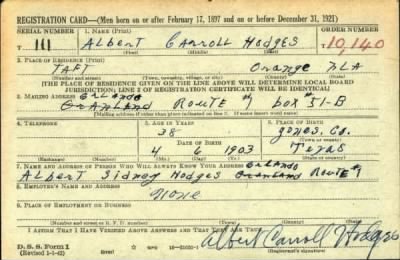 REGISTRATION CARD—(Men born on or after February 17, 1897 and on or before December 31, 1921)
SERIAL NUMBER 1. NAME (Print) ORDER NUMBER
111 Albert Carroll Hodges 10,140
(First) (Middle) (Last)
2. PLACE OF RESIDENCE (Print)
TAFT Orange FLA
(Number and street) (Town, township, village, or city) (County) (State)
[THE PLACE OF RESIDENCE GIVEN ON THE LINE ABOVE WILL DETERMINE LOCAL BOARD
JURISDICTION; LINE 2 OF REGISTRATION CERTIFICATE WILL BE IDENTICAL]
3. MAILING ADDRESS Orlando
Route #1 box #51-B
(Mailing address if other than place indicated on line 2. If same insert word same)
4. TELEPHONE 5. AGE IN YEARS 6. PLACE OF BIRTH
38 Jones. Co.
DATE OF BIRTH (Town or county)
4 6 1903 Texas
(Exchange) (Number) (Mo.) (Day) (Yr.) (State or country)
7. NAME AND ADDRESS OF PERSON WHO WILL ALWAYS KNOW YOUR ADDRESS Orlando
Albert Sidney Hodges Route #1
8. EMPLOYER'S NAME AND ADDRESS
None
9. PLACE OF EMPLOYMENT OR BUSINESS
(Number and street or R. F. D. number) (Town) (County) (State)
I AFFIRM THAT I HAVE VERIFIED ABOVE ANSWERS AND THAT THEY ARE TRUE.
D. S. S. Form 1
(Revised 1-1-42) (over)
Albert Carroll Hodges